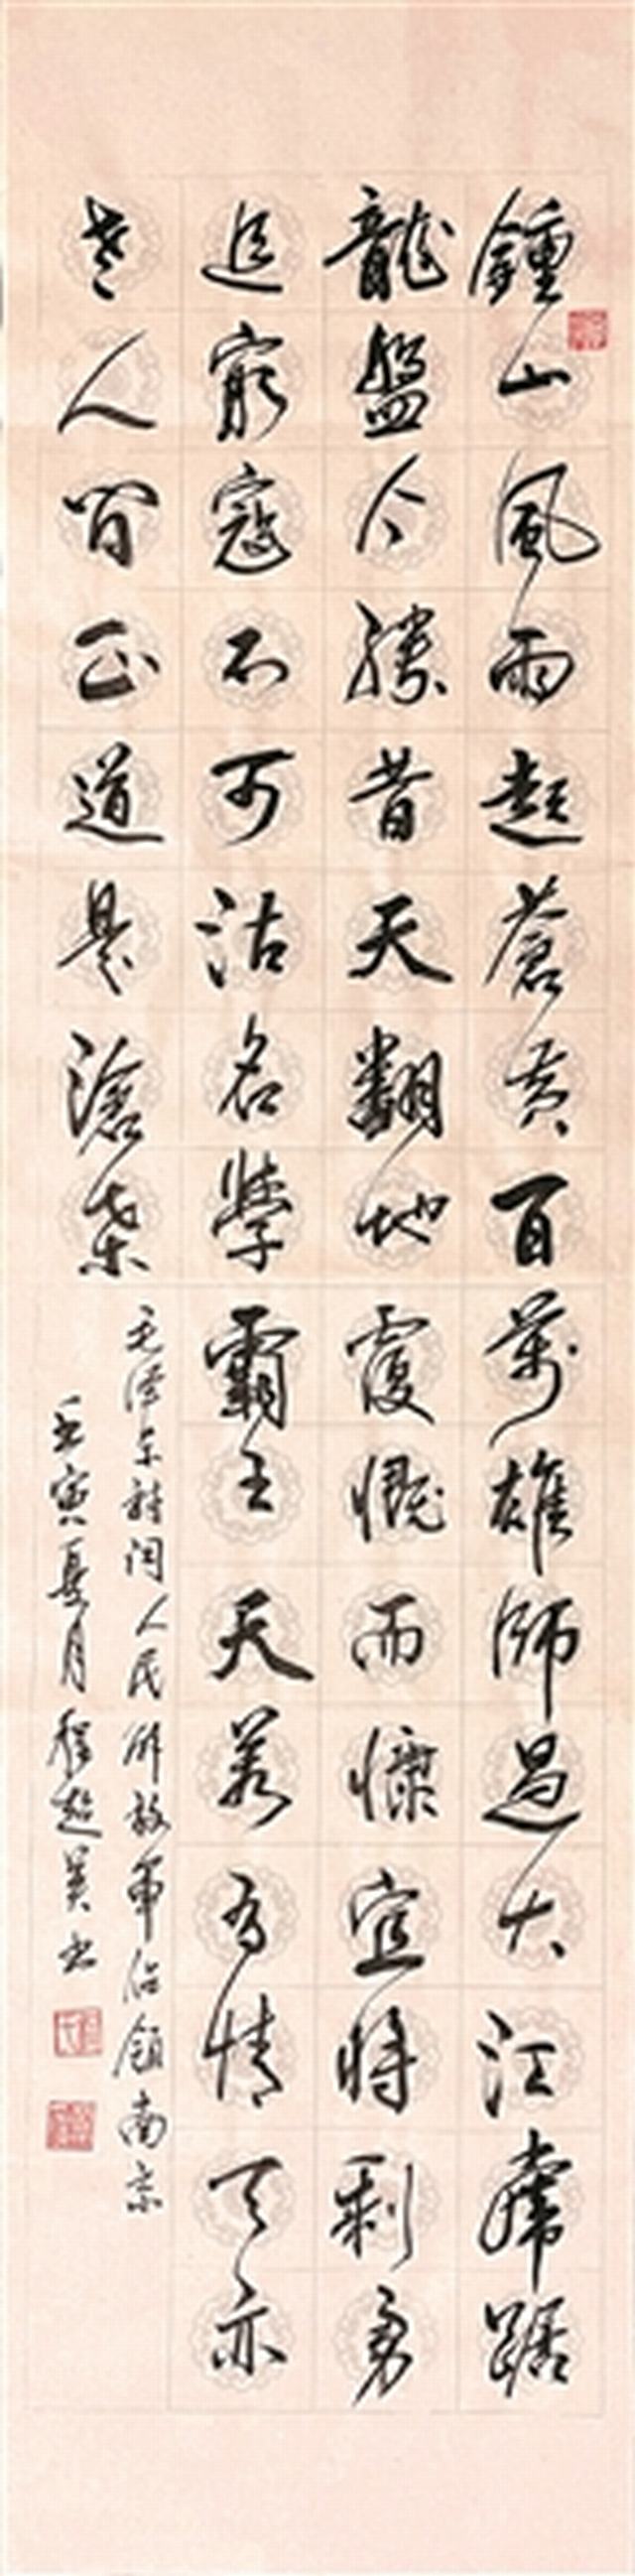 鍾山風雨起蒼黃百萬雄師過大江虎踞
龍盤今勝昔天翻地覆慨而慷宜將剩勇
追窮寇不可沽名學霸王天若有情天亦
老人間正道是滄桑
毛澤东詩词人民解放軍佔領南京
壬寅夏月程超美书